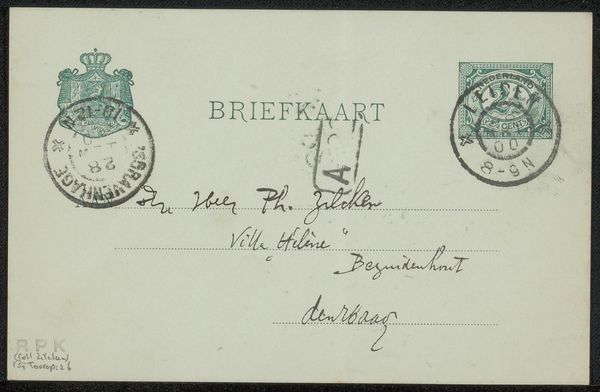 BRIEFKAART
NEDERLAND
CENT
LEIDEN
00
8-9N
'SGRAVENHAGE
28
10-12
A
Den Heer Ph. Zilcken
Villa "Hélène"
Bezuidenhout
den Haag
RPK
(Coll Zilcken)
Toorop: 26